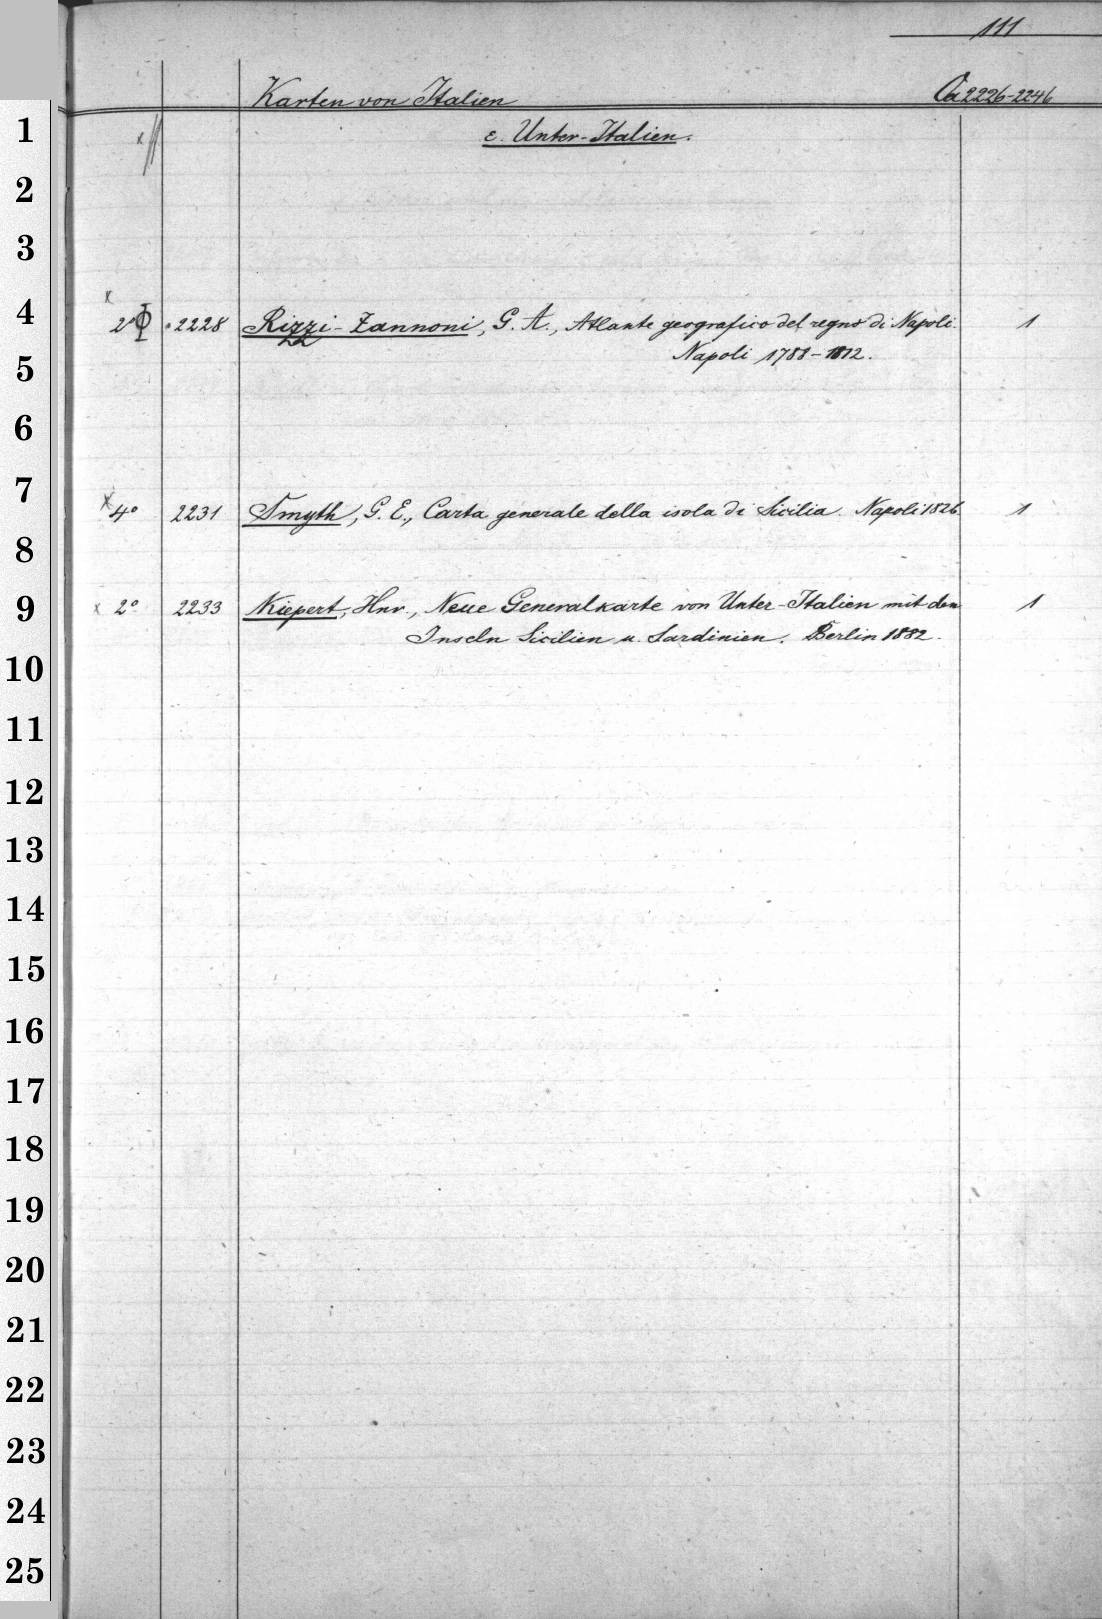 111
Karten von Italien Ca 2226-2246
x c. Unter-Italien.
x
2° Φ 2228 Rizzi-Zannoni, G. A., Atlante geografico del regno di Napoli. 1
zz
Napoli 1788-1812.
x 4° 2231 Smyth, G. E., Carta generale della isola di Sicilia. Napoli 1826 1
x 2° 2233 Kiepert, Hnr., Neue Generalkarte von Unter-Italien mit den 1
Inseln Sicilien u. Sardinien. Berlin 1882.
1
2
3
4
5
6
7
8
9
10
11
12
13
14
15
16
17
18
19
20
21
22
23
24
25